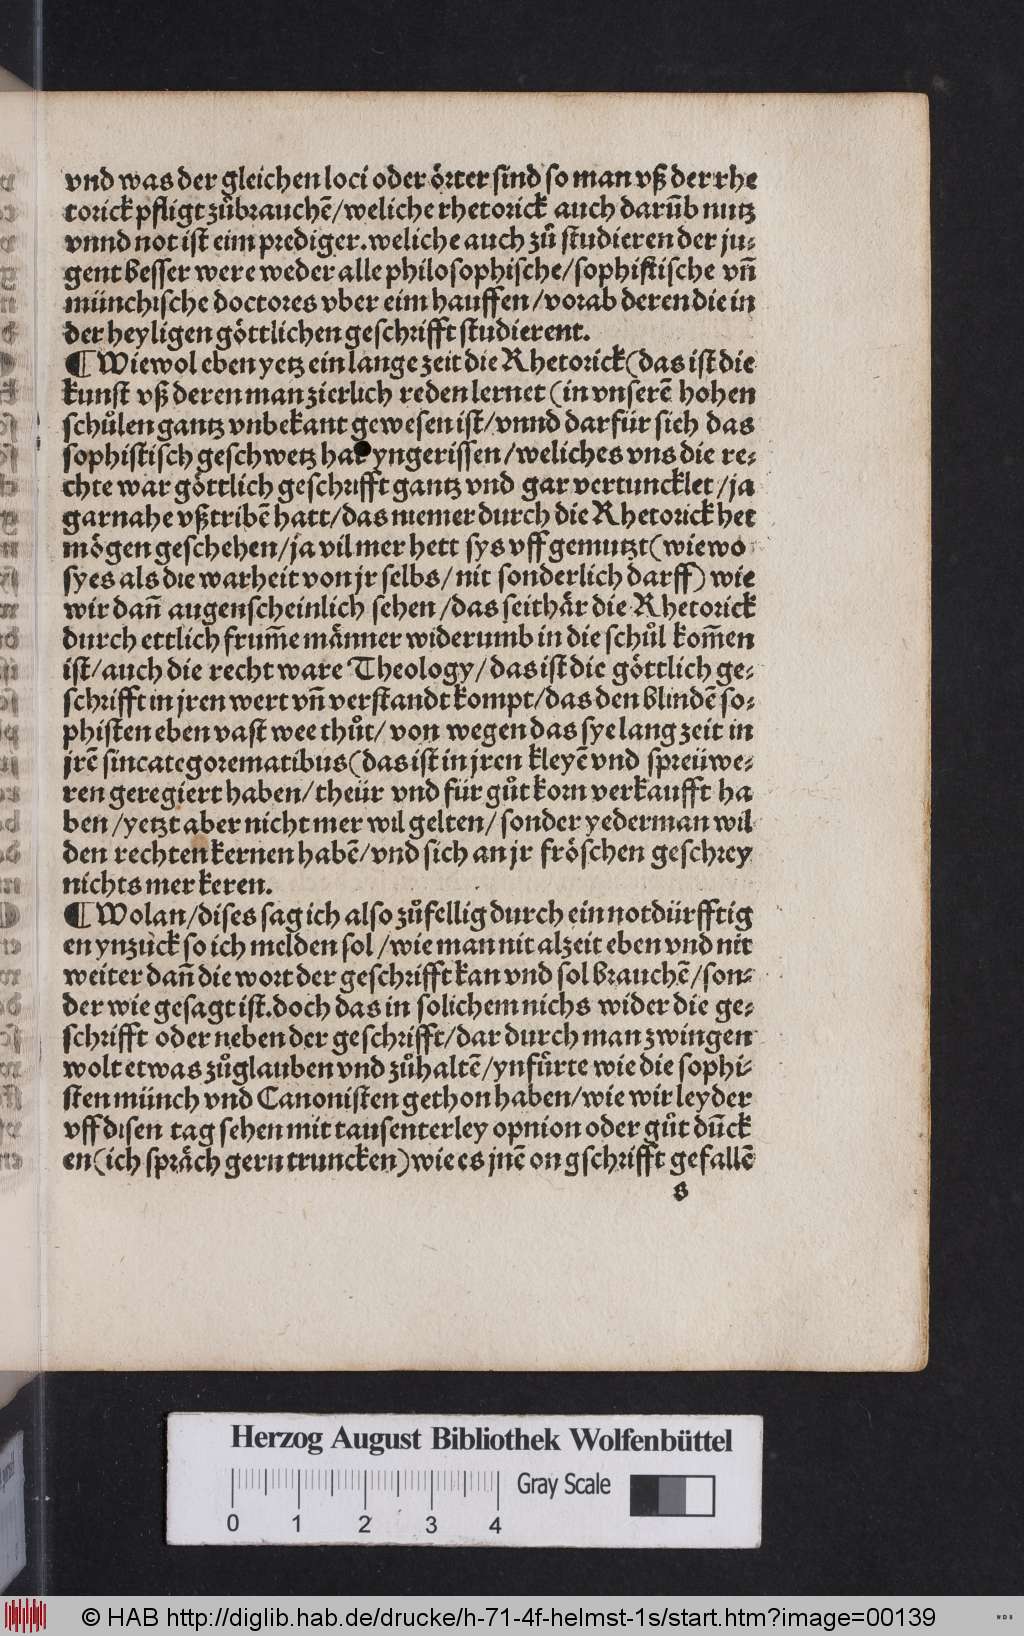 vnd was der gleichen loci oder örter sind so man vß der rhe
torick pfligt zů brauchẽ/weliche rhetorick auch darũb nutz
vnnd not ist eim prediger. weliche auch zů studieren der ju⸗
gent besser were weder alle philosophische/sophistische vñ
münchische doctores vber eim hauffen/vorab deren die in
der heyligen göttlichen geschrifft studierent.
¶ Wiewol eben yetz ein lange zeit die Rhetorick (das ist die
kunst vß deren man zierlich reden lernet (in vnserẽ hohen
schůlen gantz vnbekant gewesen ist/vnnd darfür sich das
sophistisch geschwetz hat yngerissen/weliches vns die re⸗
chte war göttlich geschrifft gantz vnd gar vertuncklet/ja
gar nahe vßtribẽ hatt/das niemer durch die Rhetorick het
mögen geschehen/ja vil mer hett sys vff gemutzt (wiewo
sy es als die warheit von jr selbs/nit sonderlich darff) wie
wir dañ augenscheinlich sehen/das seithär die Rhetorick
durch ettlich frum̃e männer widerumb in die schůl kom̃en
ist/auch die recht ware Theology/das ist die göttlich ge⸗
schrifft in jren wert vñ verstandt kompt/das den blindẽ so⸗
phisten eben vast wee thůt/ von wegen das sye lang zeit in
jrẽ sincategorematibus (das ist in jren kleyẽ vnd spreüwe⸗
ren geregiert haben/theür vnd für gůt korn verkaufft ha
ben/yetzt aber nicht mer wil gelten/sonder yederman wil
den rechten kernen habẽ/vnd sich an jr fröschen geschrey
nichts mer keren.
¶ Wolan/dises sag ich also zůfellig durch ein notdürfftig
en ynzuck so ich melden sol/wie man nit alzeit eben vnd nit
weiter dañ die wort der geschrifft kan vnd sol brauchẽ/son⸗
der wie gesagt ist. doch das in solichem nichs wider die ge⸗
schrifft oder neben der geschrifft/dar durch man zwingen
wolt etwas zůglauben vnd zůhaltẽ/ynfůrte wie die sophi⸗
sten münch vnd Canonisten gethon haben/wie wir leyder
vff disen tag sehen mit tausenterley opnion oder gůt dũck
en (ich spräch gern truncken) wie es jnẽ on gschrifft gefallẽ
s
Herzog August Bibliothek Wolfenbüttel
Gray Scale
0 1 2 3 4
© HAB http://diglib.hab.de/drucke/h-71-4f-helmst-1s/start.htm?image=00139